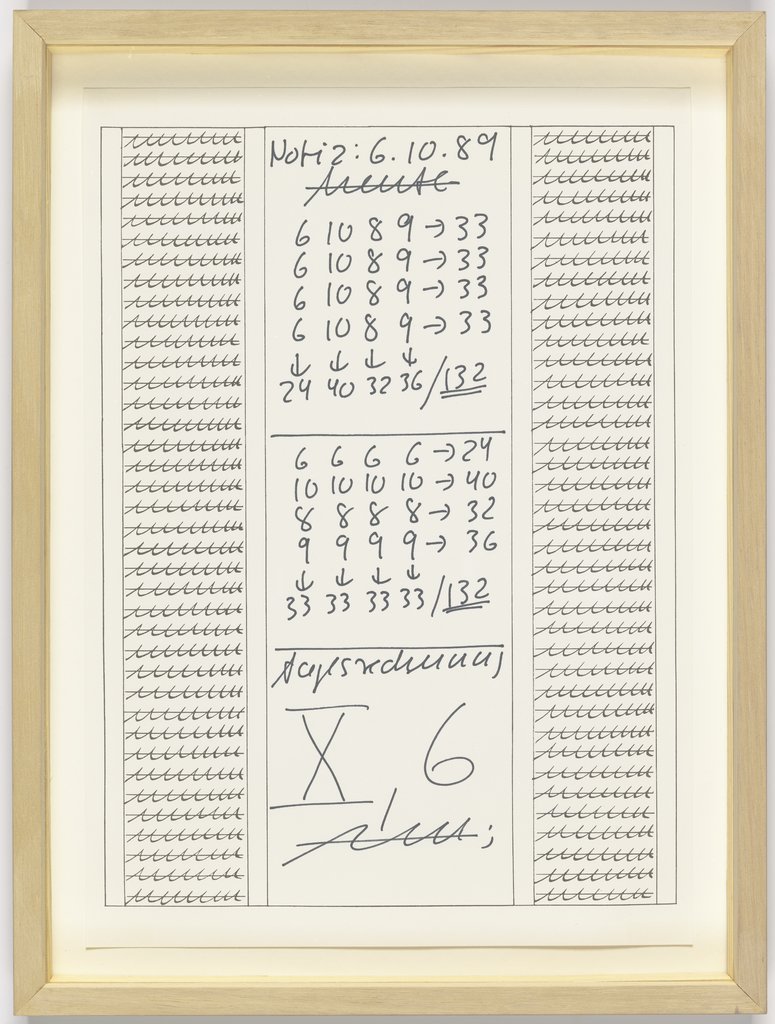 Notiz: 6.10.89
heute
6 10 8 9 → 33
6 10 8 9 → 33
6 10 8 9 → 33
6 10 8 9 → 33
↓ ↓ ↓ ↓
24 40 32 36 / 132
6 6 6 6 → 24
10 10 10 10 → 40
8 8 8 8 → 32
9 9 9 9 → 36
↓ ↓ ↓ ↓
33 33 33 33 / 132
Tagesrechnung
X 6